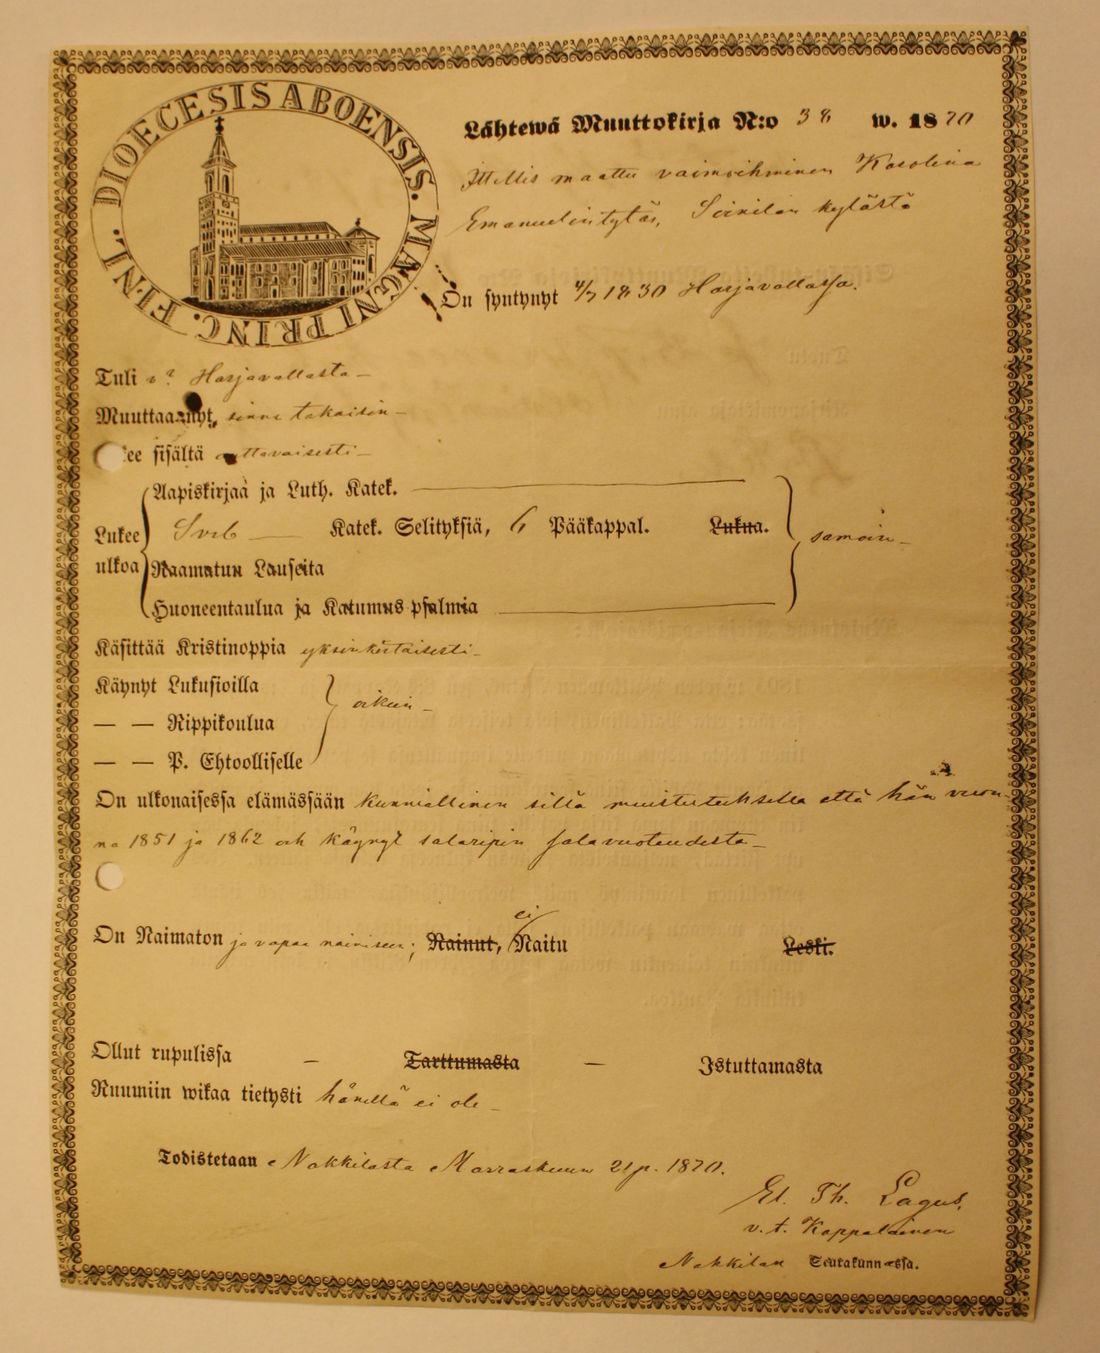 DIOECESIS ABOENSIS. MAGNI PRINC. FINL.
Lähtewä Muuttokirja N:o 38 w. 1870
Ittellis maattu vaimoihminen Karolina
Emanuelintytär, Soinilan kylästä
On syntynyt 4/7 1830 Harjavallassa.
Tuli Harjavallasta –
Muuttaa sinne takaisin –
sisältä auttavaisesti –
Aapiskirjaa ja Luth. Katek.
Lukee ulkoa Sveb – Katek. Selityksiä, 6 Pääkappal. Lukua. samoin –
Raamatun Lauseita
Huoneentaulua ja Katumus-psalmia
Käsittää Kristinoppia yksinkertaisesti –
Käynyt Lukusioilla
— — Rippikoulua oikein –
— — P. Ehtoolliselle
On ulkonaisessa elämässään kunniallinen sillä muistutuksella että hän vuon-
na 1851 ja 1862 on käynyt salaripin salavuoteudesta –
On Naimaton ja vapaa naimiseen; Nainut, ei Naitu Leski.
Ollut rupulissa – Tarttumasta – Istuttamasta
Ruumiin wikaa tietysti hänellä ei ole –
Todistetaan Nakkilasta Marraskuun 21 p. 1870.
Th. Lagus,
v. t. Kappalainen
Nakkilan Seurakunnassa.